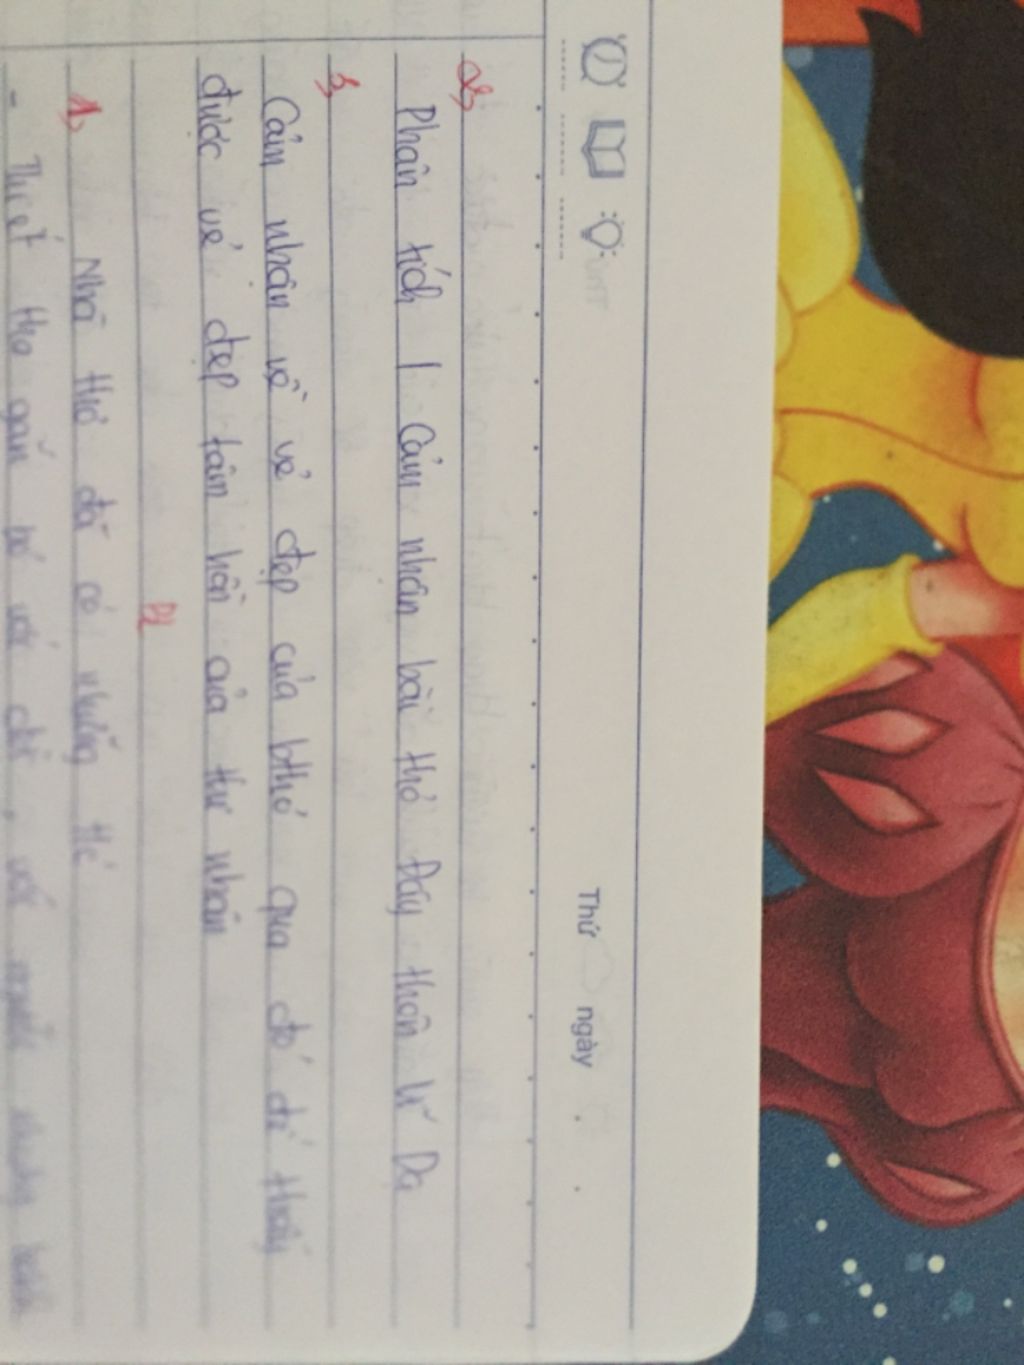 Thứ ngày . .
2,
Phân tích / Cảm nhận bài thơ Đây thôn Vĩ Dạ
3,
Cảm nhận về vẻ đẹp của bthơ qua đó để thấy
được vẻ đẹp tâm hồn của thi nhân
1, Nhà thơ đã có những
- Thiết tha gắn bó với đời, với